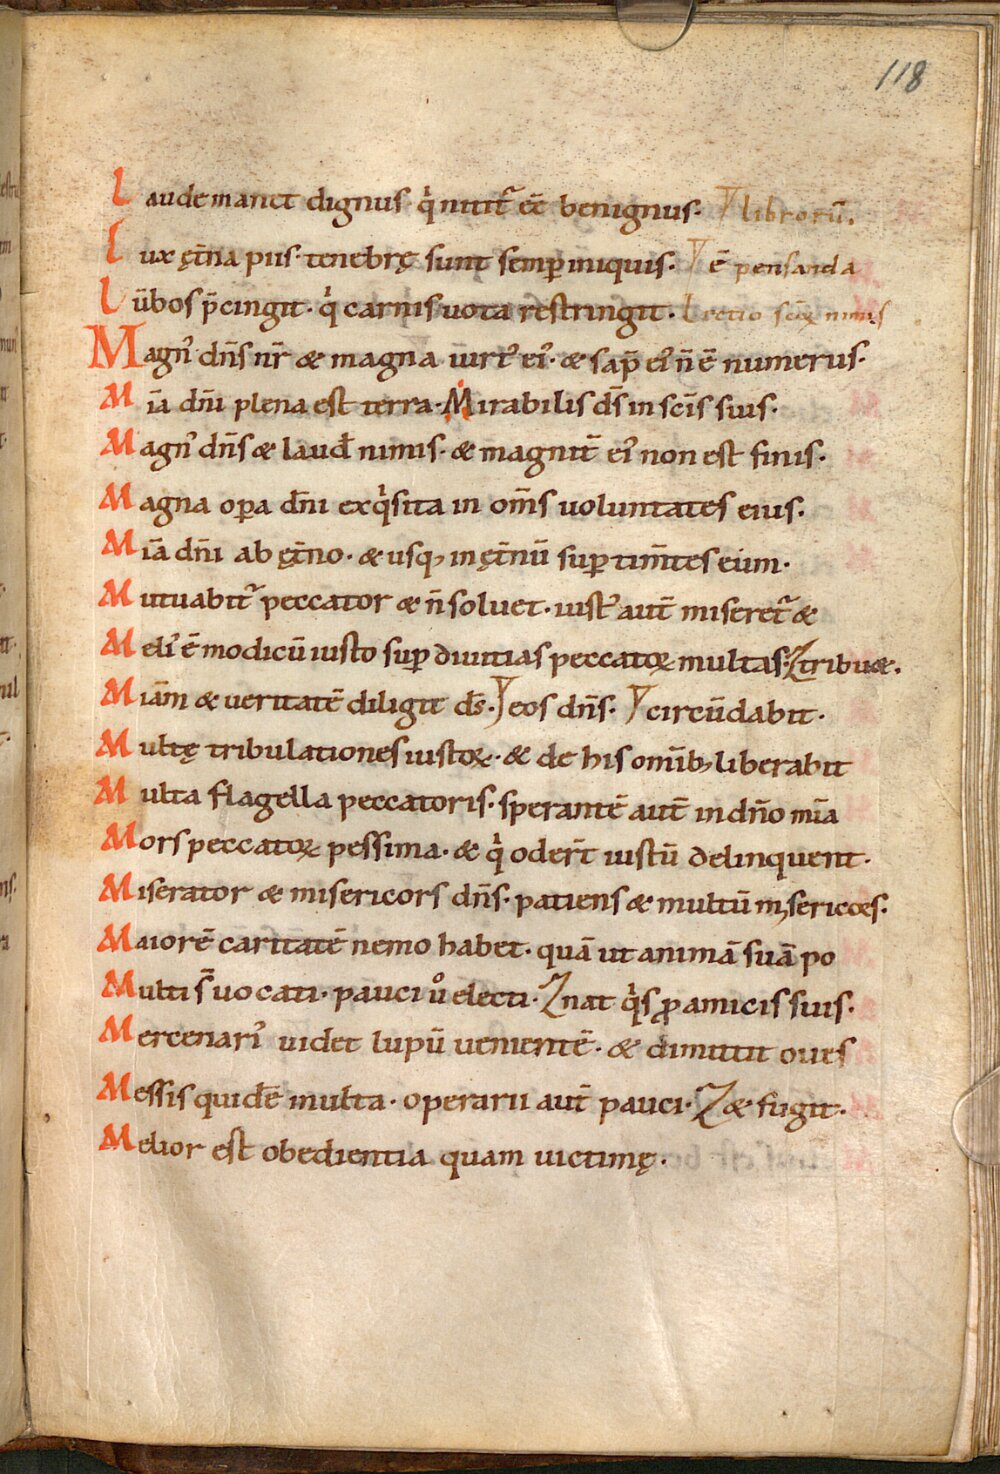 118
Laude manet dignus q̇ nitit̃ eē benignus· librorũ.
Lux ęt̄na piis· tenebrę sunt semp̄ iniquis· ē pensanda
Lūbos p̄cingit· q̇ carnis uota restringit· Lectio scāꝝ nimis
Magn᾿ dn̄s nr̄ & magna uirt᾿ ei᾿· & sap̄ ei᾿ n̄ ē numerus·
Mīa dn̄i plena est terra· Mirabilis ds̄ in scīs suis·
Magn᾿ dn̄s & laud̄ nimis· & magnit̄ ei᾿ non est finis·
Magna op̄a dn̄i exq̇sita in om̄s uoluntates eius·
Mīa dn̄i ab ęt̄no· & usq; in ęt̄nū sup̄ tim̄tes eum·
Mutuabit̃ peccator & n̄ soluet· iust᾿ aut̄ miseret̃ &
Meli᾿ ē modicū iusto sup̄ diuitias peccatoꝝ multas· tribuæ.
Miām & ueritatē diligit ds̄· eos dn̄s· circūdabit·
Multę tribulationes iustoꝝ· & de his omīb; liberabit
Multa flagella peccatoris· sperantē aut̄ in dn̄o mīa
Mors peccatoꝝ pessima· & q̇ oder̄t iustū delinquent·
Miserator & misericors dn̄s· patiens & multū misericors·
Maiorē caritatē nemo habet· quā ut animā suā po
Multi s̄ uocati· pauci uͦ electi· nat q̇s ꝓ amicis suis·
Mercenari᾿ uidet lupū uenientē· & dimittit oues
Messis quidē multa· operarii aut̄ pauci· & fugit·
Melior est obedientia quam uictimę·